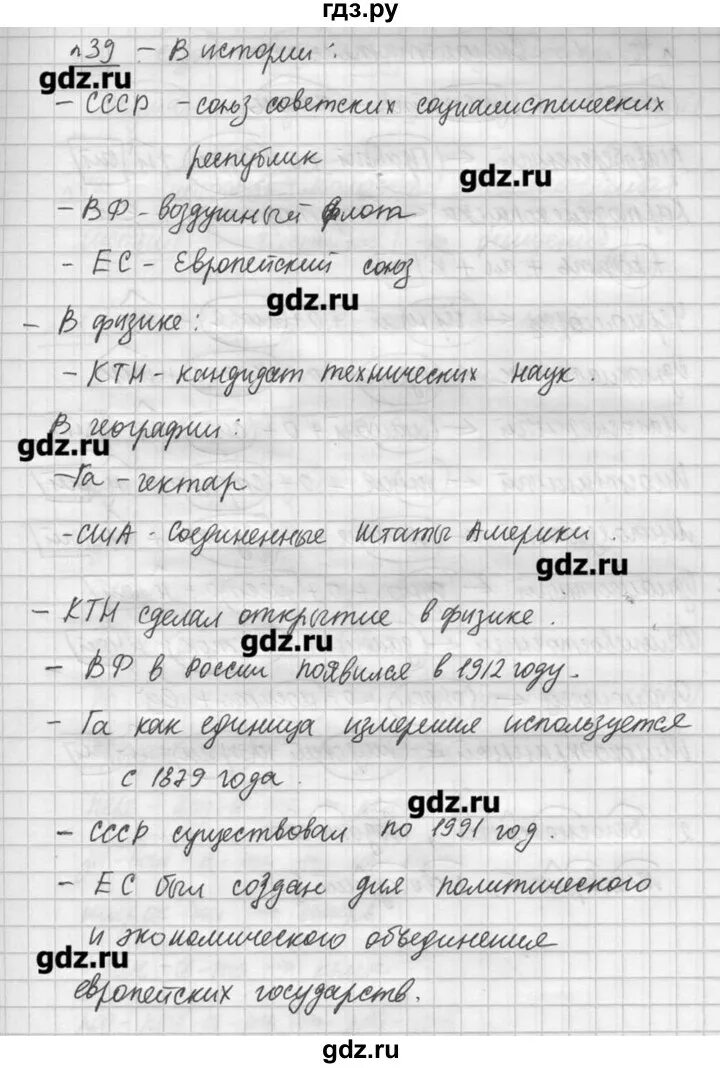 гдз.ру
n39 – В истории:
gdz.ru
– СССР – союз советских социалистических
республик
gdz.ru
– ВФ – воздушный флот
– ЕС – Европейский союз
gdz.ru
– В физике:
– КТН – кандидат технических наук.
В географии:
gdz.ru
– Га – гектар
– США – Соединенные Штаты Америки.
gdz.ru
– КТН сделал открытие в физике.
gdz.ru
– ВФ в России появился в 1912 году.
– Га как единица измерения используется
с 1879 года.
gdz.ru
– СССР существовал по 1991 год.
– ЕС был создан для политического
и экономического объединения
gdz.ru
европейских государств.
gdz.ru